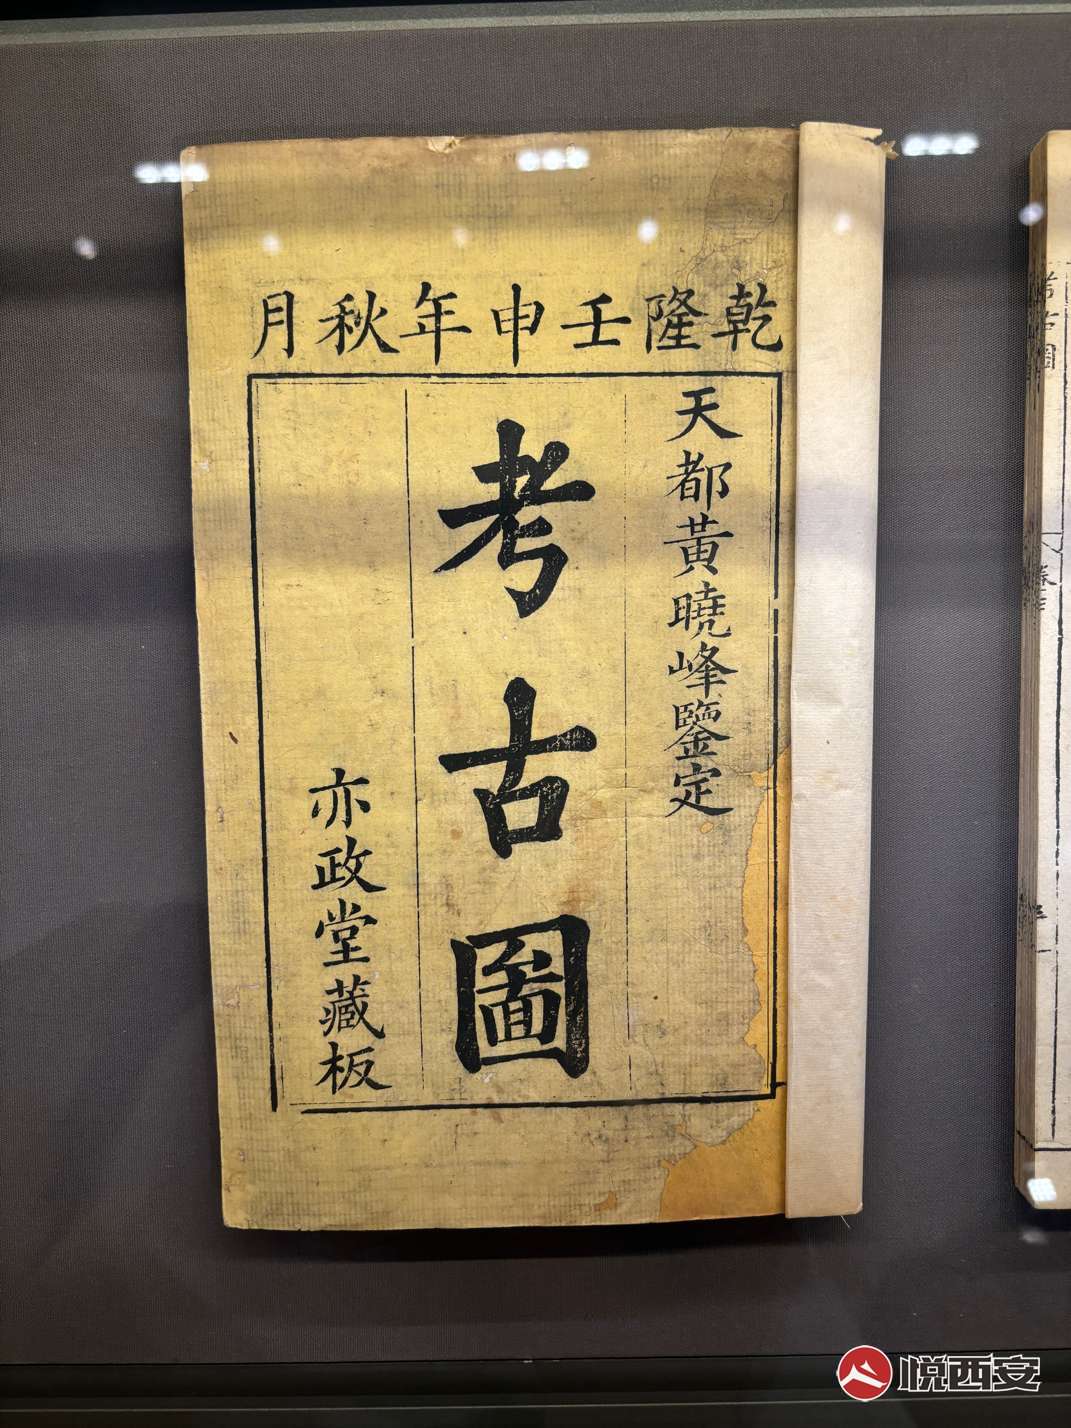 乾隆壬申年秋月
天都黃曉峰鑒定
考古圖
亦政堂藏板
考古圖
悦西安